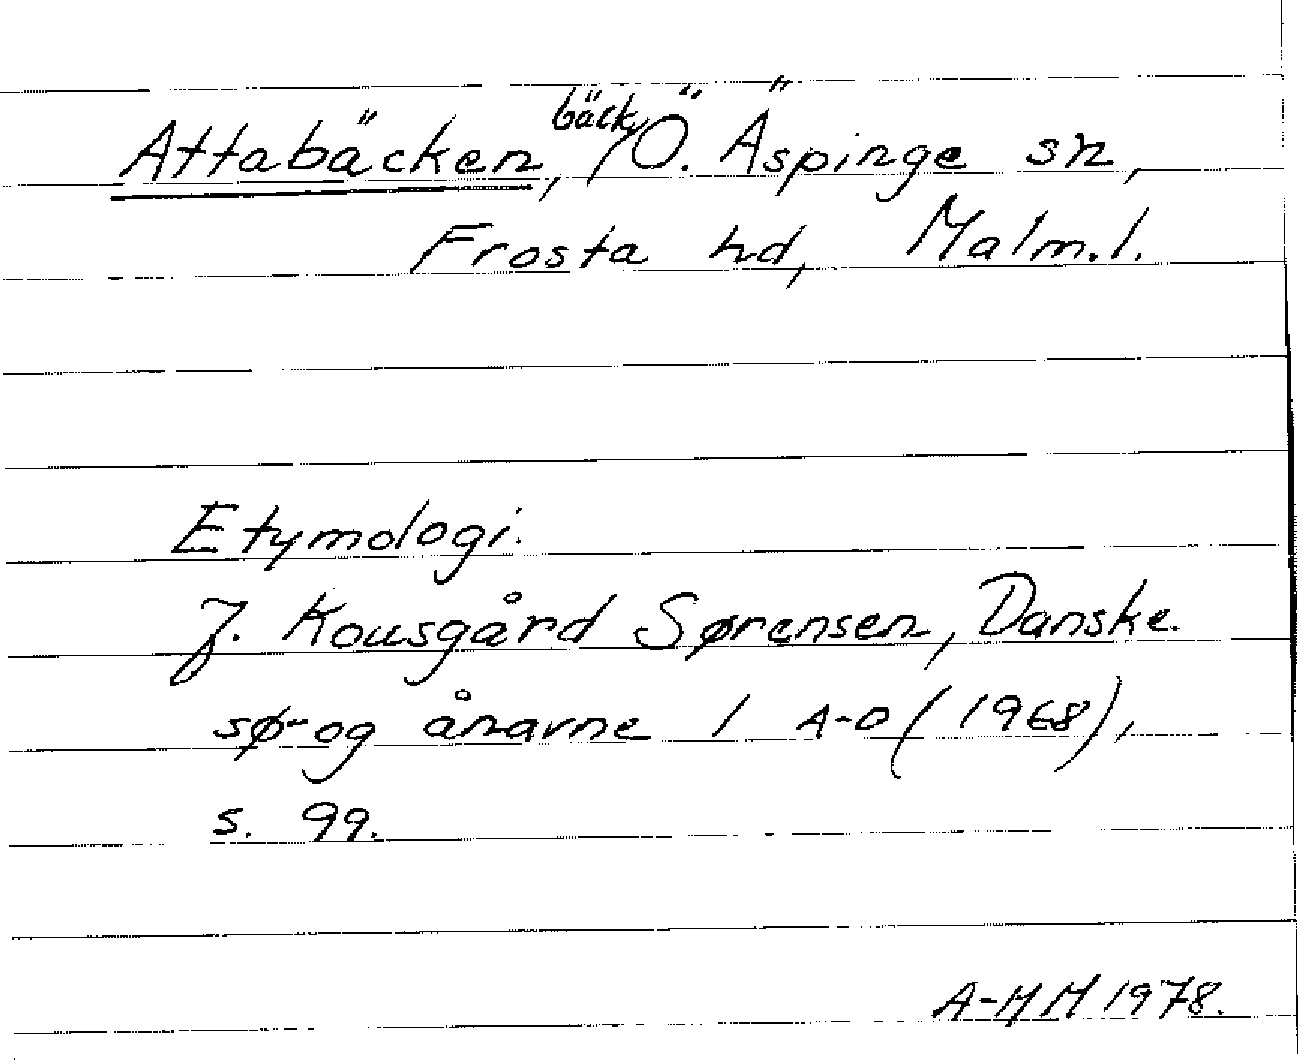 Attabäcken, bäck, Ö. Äspinge sn,
Frosta hd, Malm.l.
Etymologi.
J. Kousgård Sørensen, Danske
sø- og ånavne 1 A-D (1968),
s. 99.
A-MH 1978.